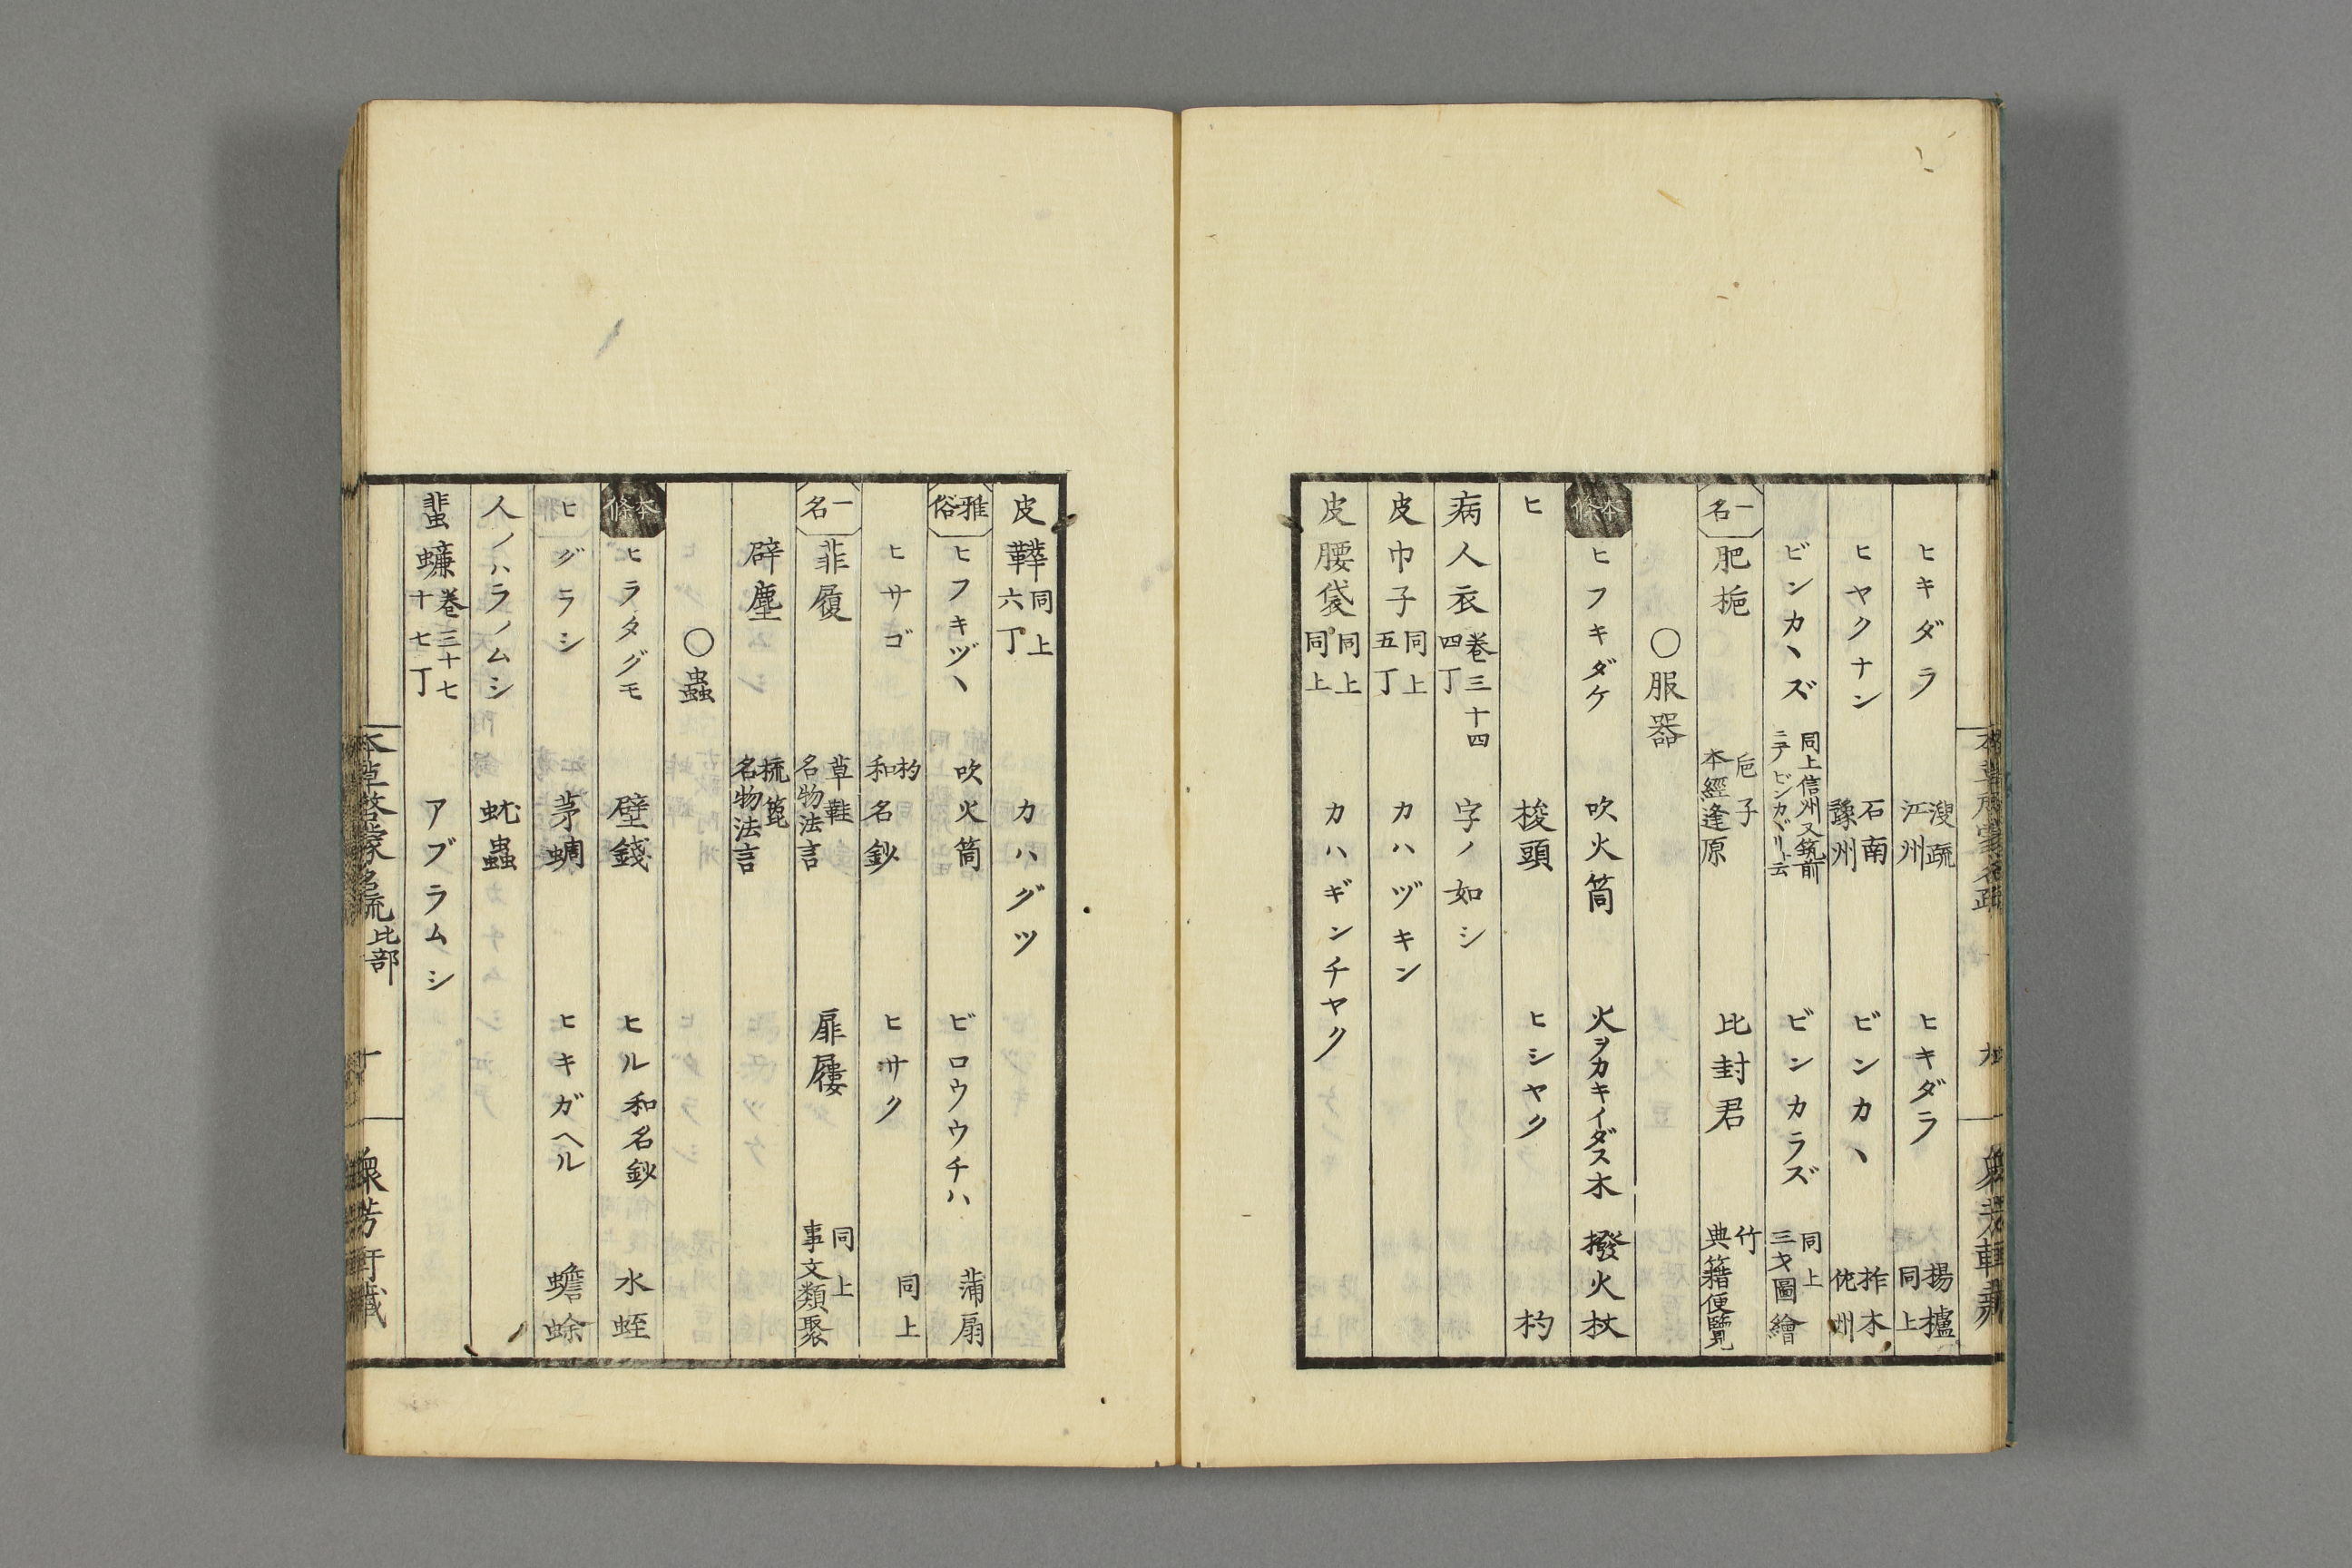 ヒキダラ 溲疏 江州 ヒキダラ 楊櫨 同上
ヒヤクナン 石南 豫州 ビンカヽ 柞木 佗州
ビンカヽズ 同上信州又筑前ニテビンカヾリト云 ビンカラズ 同上 三才圖繪
一名 肥梔 巵子 本經逢原 比封君 竹 典籍便覽
〇服器
本條 ヒフキダケ 吹火筒 火ヲカキイダス木 撥火杖
ヒ 梭頭 ヒシヤク 杓
病人衣 卷三十四 四丁 字ノ如シ
皮巾子 同上 五丁 カハヅキン
皮腰袋 同上 同上 カハギンチヤク
皮鞾 同上 六丁 カハグツ
雅俗 ヒフキヅヽ 吹火筒 ビロウウチハ 蒲扇
ヒサゴ 杓 和名鈔 ヒサク 同上
一名 菲履 草鞋 名物法言 屝屨 同上 事文類聚
辟塵 梳篦 名物法言
〇蟲
本條 ヒラタグモ 壁錢 ヒル和名鈔 水蛭
ヒグラシ 茅蜩 ヒキガヘル 蟾蜍
人ノハラノムシ 蚘蟲
蜚蠊 卷三十七 十七丁 アブラムシ
本草啓蒙名疏 比部 十 衆芳軒藏